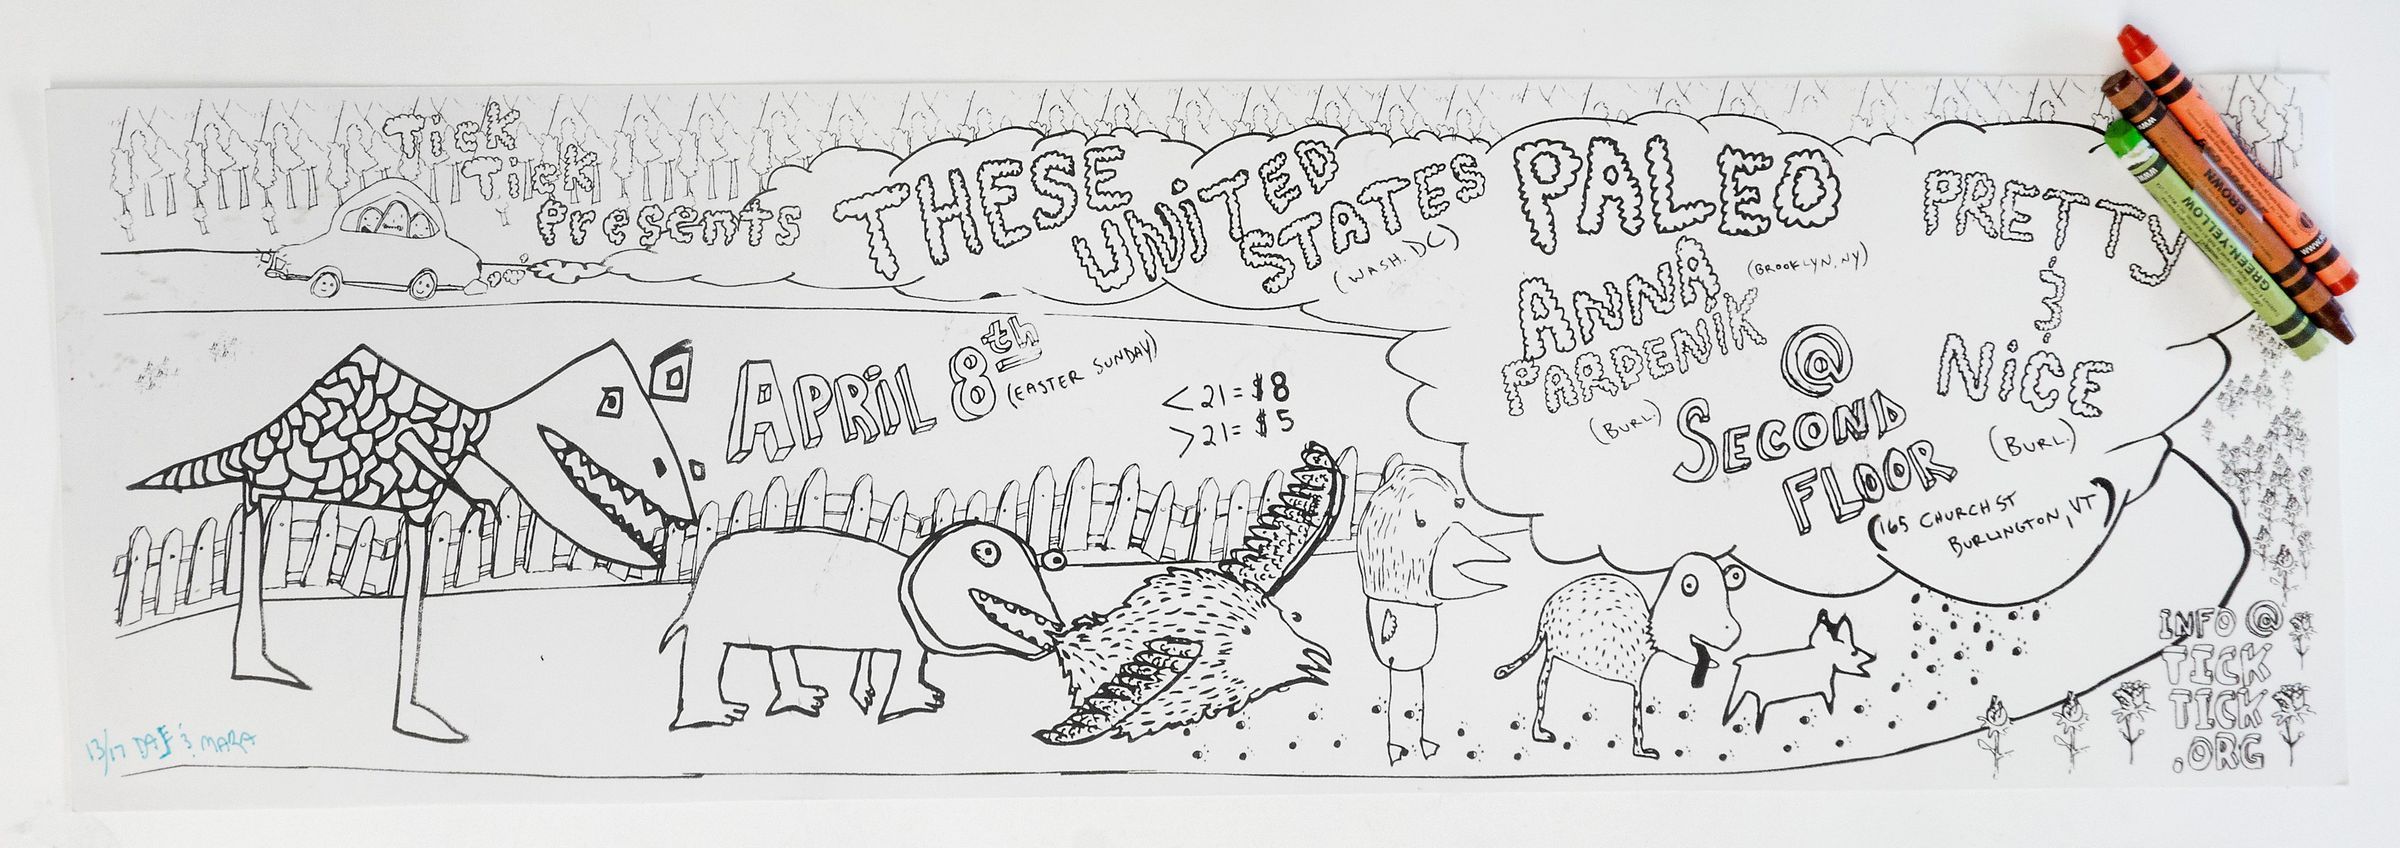 Tick
Tick
Presents
THESE
UNITED
STATES
(WASH. DC)
PALEO
(BROOKLYN, NY)
ANNA
PARDENIK
(BURL.)
PRETTY
&
NICE
(BURL.)
@
SECOND
FLOOR
(165 CHURCH ST
BURLINGTON, VT)
APRIL 8th
(EASTER SUNDAY)
< 21 = $8
> 21 = $5
INFO @
TICK
TICK
.ORG
13/17
& MARA
GREEN-YELLOW
BROWN